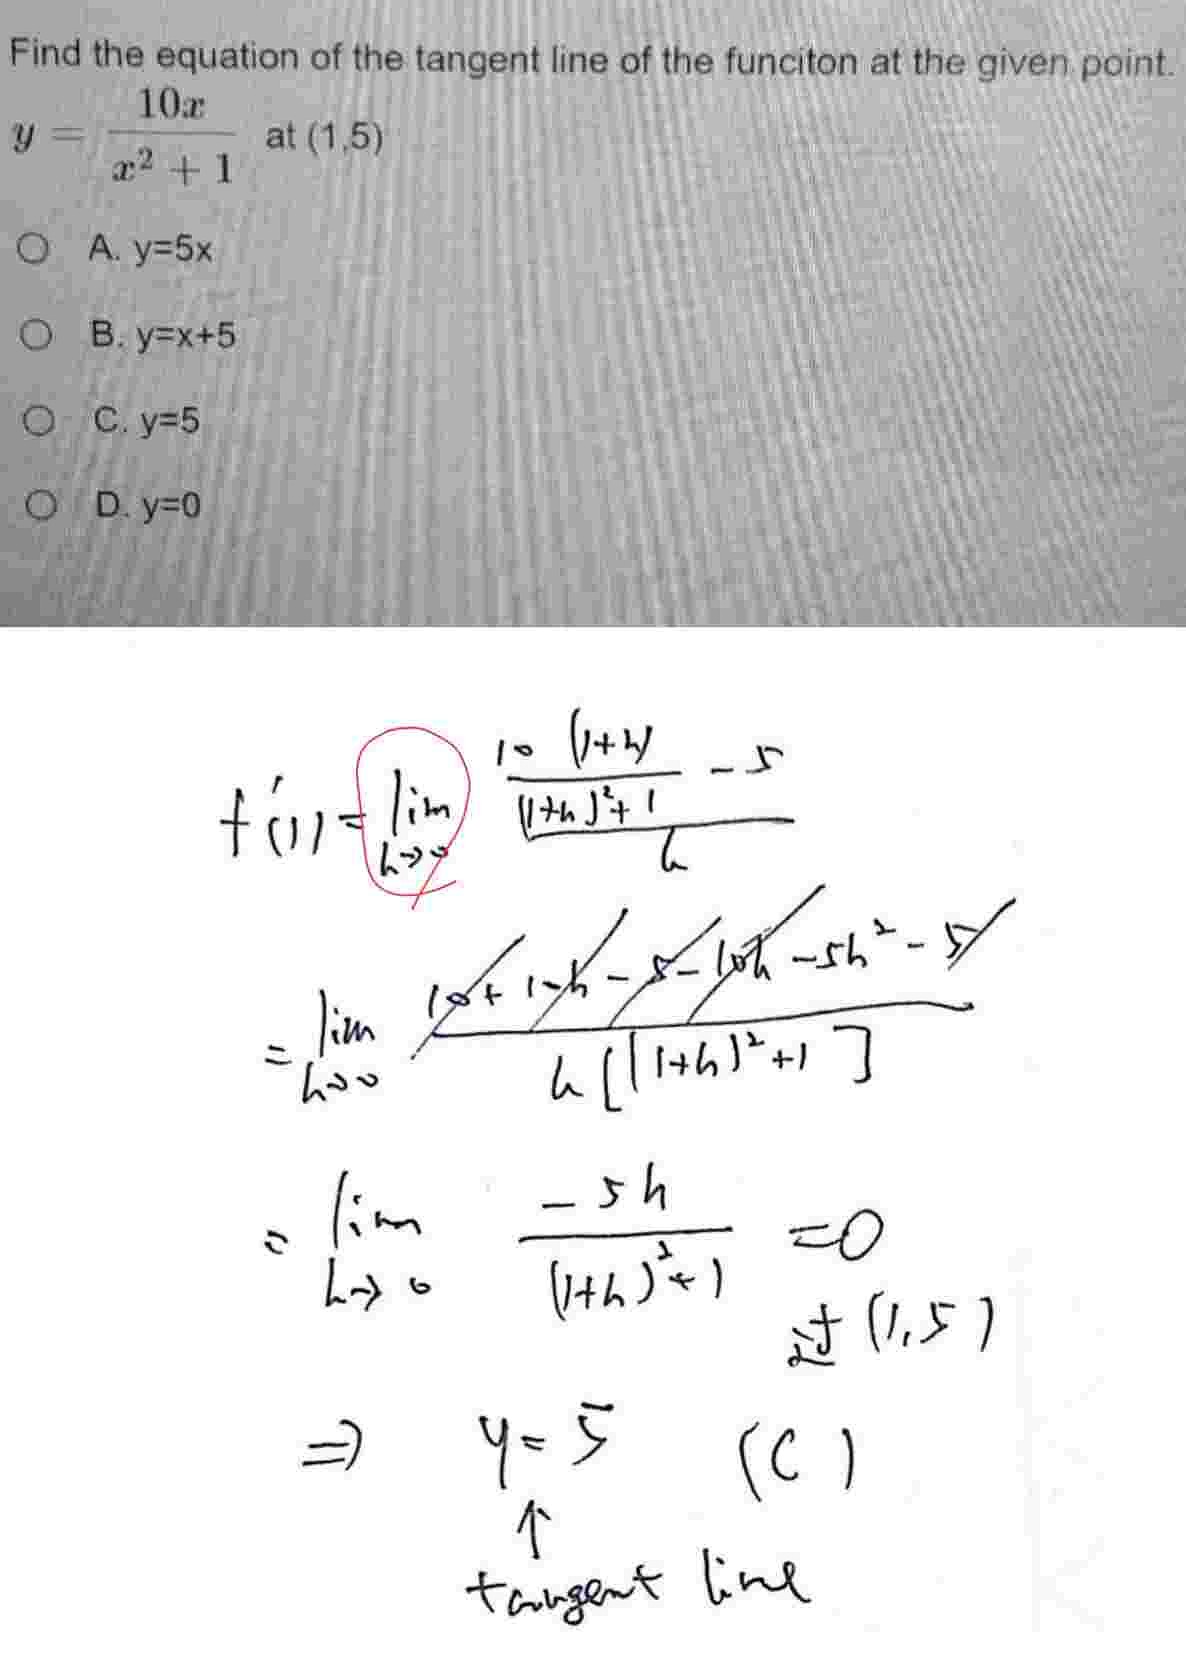 Find the equation of the tangent line of the funciton at the given point.
y = 10x / (x² + 1) at (1,5)
A. y=5x
B. y=x+5
C. y=5
D. y=0
f'(1) = lim h→0 (10(1+h) / ((1+h)²+1) - 5) / h
= lim h→0 (10+10h-5-10h-5h²-5) / (h[(1+h)²+1])
= lim h→0 -5h / ((1+h)²+1) =0
过(1,5)
⇒ y=5 (C)
↑
tangent line